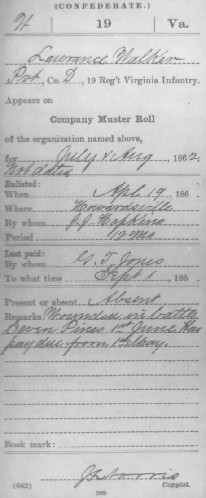 (CONFEDERATE.)
W 19 Va.
Lawrance Walker
Pvt, Co. D, 19 Reg't Virginia Infantry.
Appears on
Company Muster Roll
of the organization named above,
for July & Aug, 1862.
Not dated
Enlisted:
When Apl. 19, 186
Where Howardsville
By whom J. J. Hopkins
Period 12 Mo
Last paid:
By whom G. T. Jones
To what time Sept 1, 186
Present or absent Absent
Remarks: Wounded in battle
Seven Pines 1st June. Has
pay due from 1st May.
Book mark:
(642) Copyist.